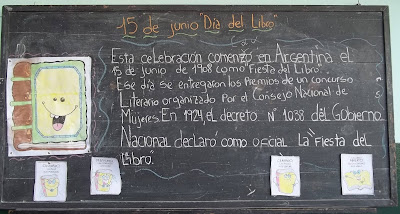 15 de junio "Día del Libro"
Esta celebración comenzó en Argentina el
15 de junio de 1908 como "Fiesta del Libro".
Ese día se entregaron los Premios de un concurso
Literario organizado Por el Consejo Nacional de
Mujeres. En 1924, el decreto Nº 1038 del Gobierno
Nacional declaró como oficial La "Fiesta del
Libro".